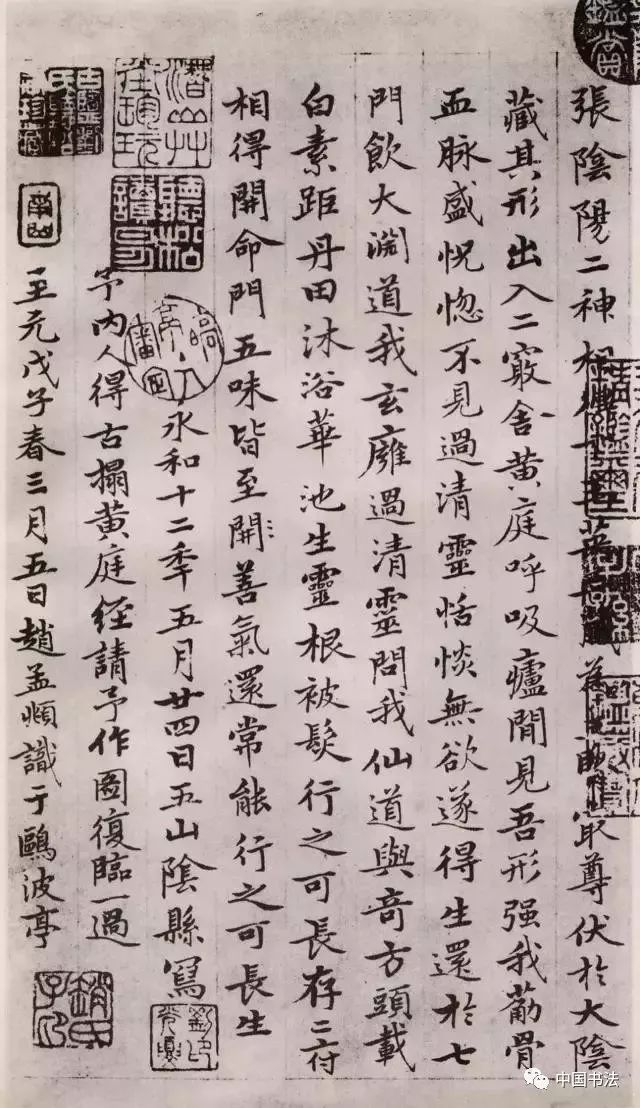 張陰陽二神相尊伏於大陰
藏其形出入二竅舍黄庭呼吸廬間見吾形强我筋骨
血脉盛怳惚不見過清靈恬惔無欲遂得生還於七
門飲大淵道我玄廱過清靈問我仙道與奇方頭載
白素距丹田沐浴華池生靈根被髮行之可長存二府
相得開命門五味皆至開善氣還常能行之可長生
永和十二年五月廿四日五山陰縣寫
予内人得古搨黄庭經請予作圖復臨一過
至元戊子春三月五日趙孟頫識于鷗波亭
趙氏子昂
中国书法